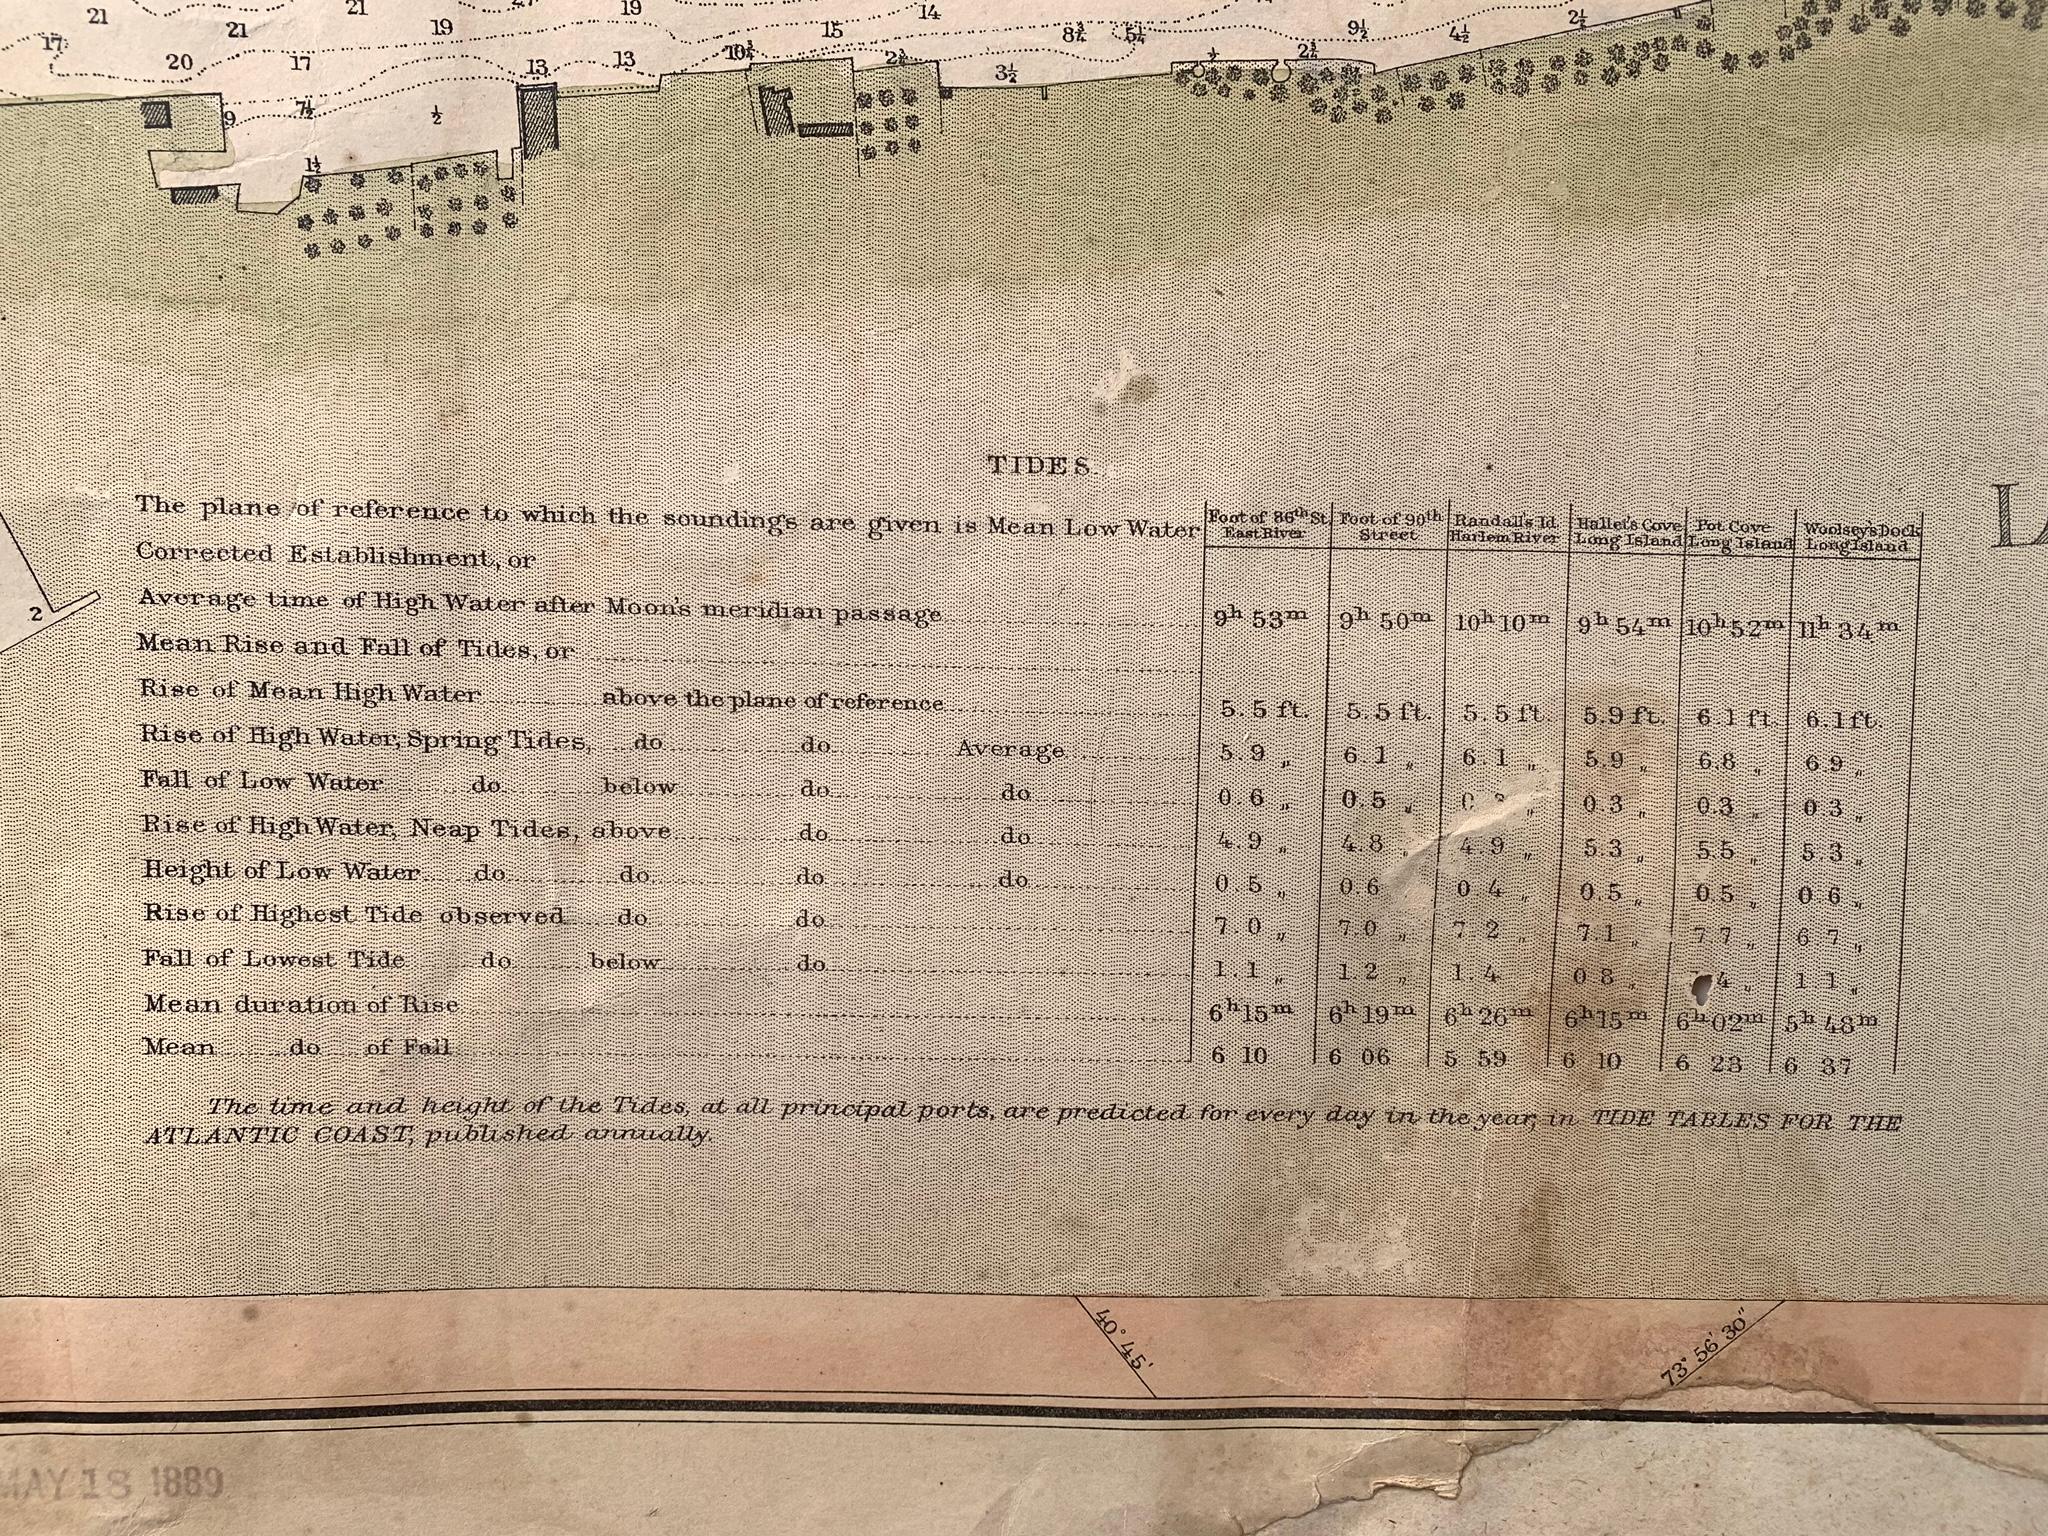 21 21 19 14
17 21 19 15 8¾ 5¼ 9½ 4½ 2½
20 17 13 13 10¾ 2¾ 3½ ½ 2¾
9 7½ ½
1½
TIDES.
The plane of reference to which the soundings are given is Mean Low Water Foot of 86th St. East River Foot of 90th Street Randall's Id. Harlem River Hallet's Cove Long Island Pot Cove Long Island Woolsey's Dock Long Island
Corrected Establishment, or
Average time of High Water after Moon's meridian passage 9h 53m 9h 50m 10h 10m 9h 54m 10h 52m 11h 34m
Mean Rise and Fall of Tides, or
Rise of Mean High Water above the plane of reference 5.5 ft. 5.5 ft. 5.5 ft. 5.9 ft. 6.1 ft. 6.1 ft.
Rise of High Water, Spring Tides, do do Average 5.9 „ 6.1 „ 6.1 „ 5.9 „ 6.8 „ 6.9 „
Fall of Low Water do below do do 0.6 „ 0.5 „ „ 0.3 „ 0.3 „ 0.3 „
Rise of High Water, Neap Tides, above do do 4.9 „ 4.8 „ 4.9 „ 5.3 „ 5.5 „ 5.3 „
Height of Low Water do do do do 0.5 „ 0.6 0.4 „ 0.5 „ 0.5 „ 0.6 „
Rise of Highest Tide observed do do 7.0 „ 7.0 „ 7.2 „ 7.1 „ 7.7 „ 6.7 „
Fall of Lowest Tide do below do 1.1 „ 1.2 „ 1.4 0.8 „ 4 „ 1.1 „
Mean duration of Rise 6h 15m 6h 19m 6h 26m 6h 15m 6h 02m 5h 48m
Mean do of Fall 6 10 6 06 5 59 6 10 6 23 6 37
The time and height of the Tides, at all principal ports, are predicted for every day in the year, in TIDE TABLES FOR THE
ATLANTIC COAST, published annually.
2
L
40° 45'
73° 56' 30"
MAY 18 1889